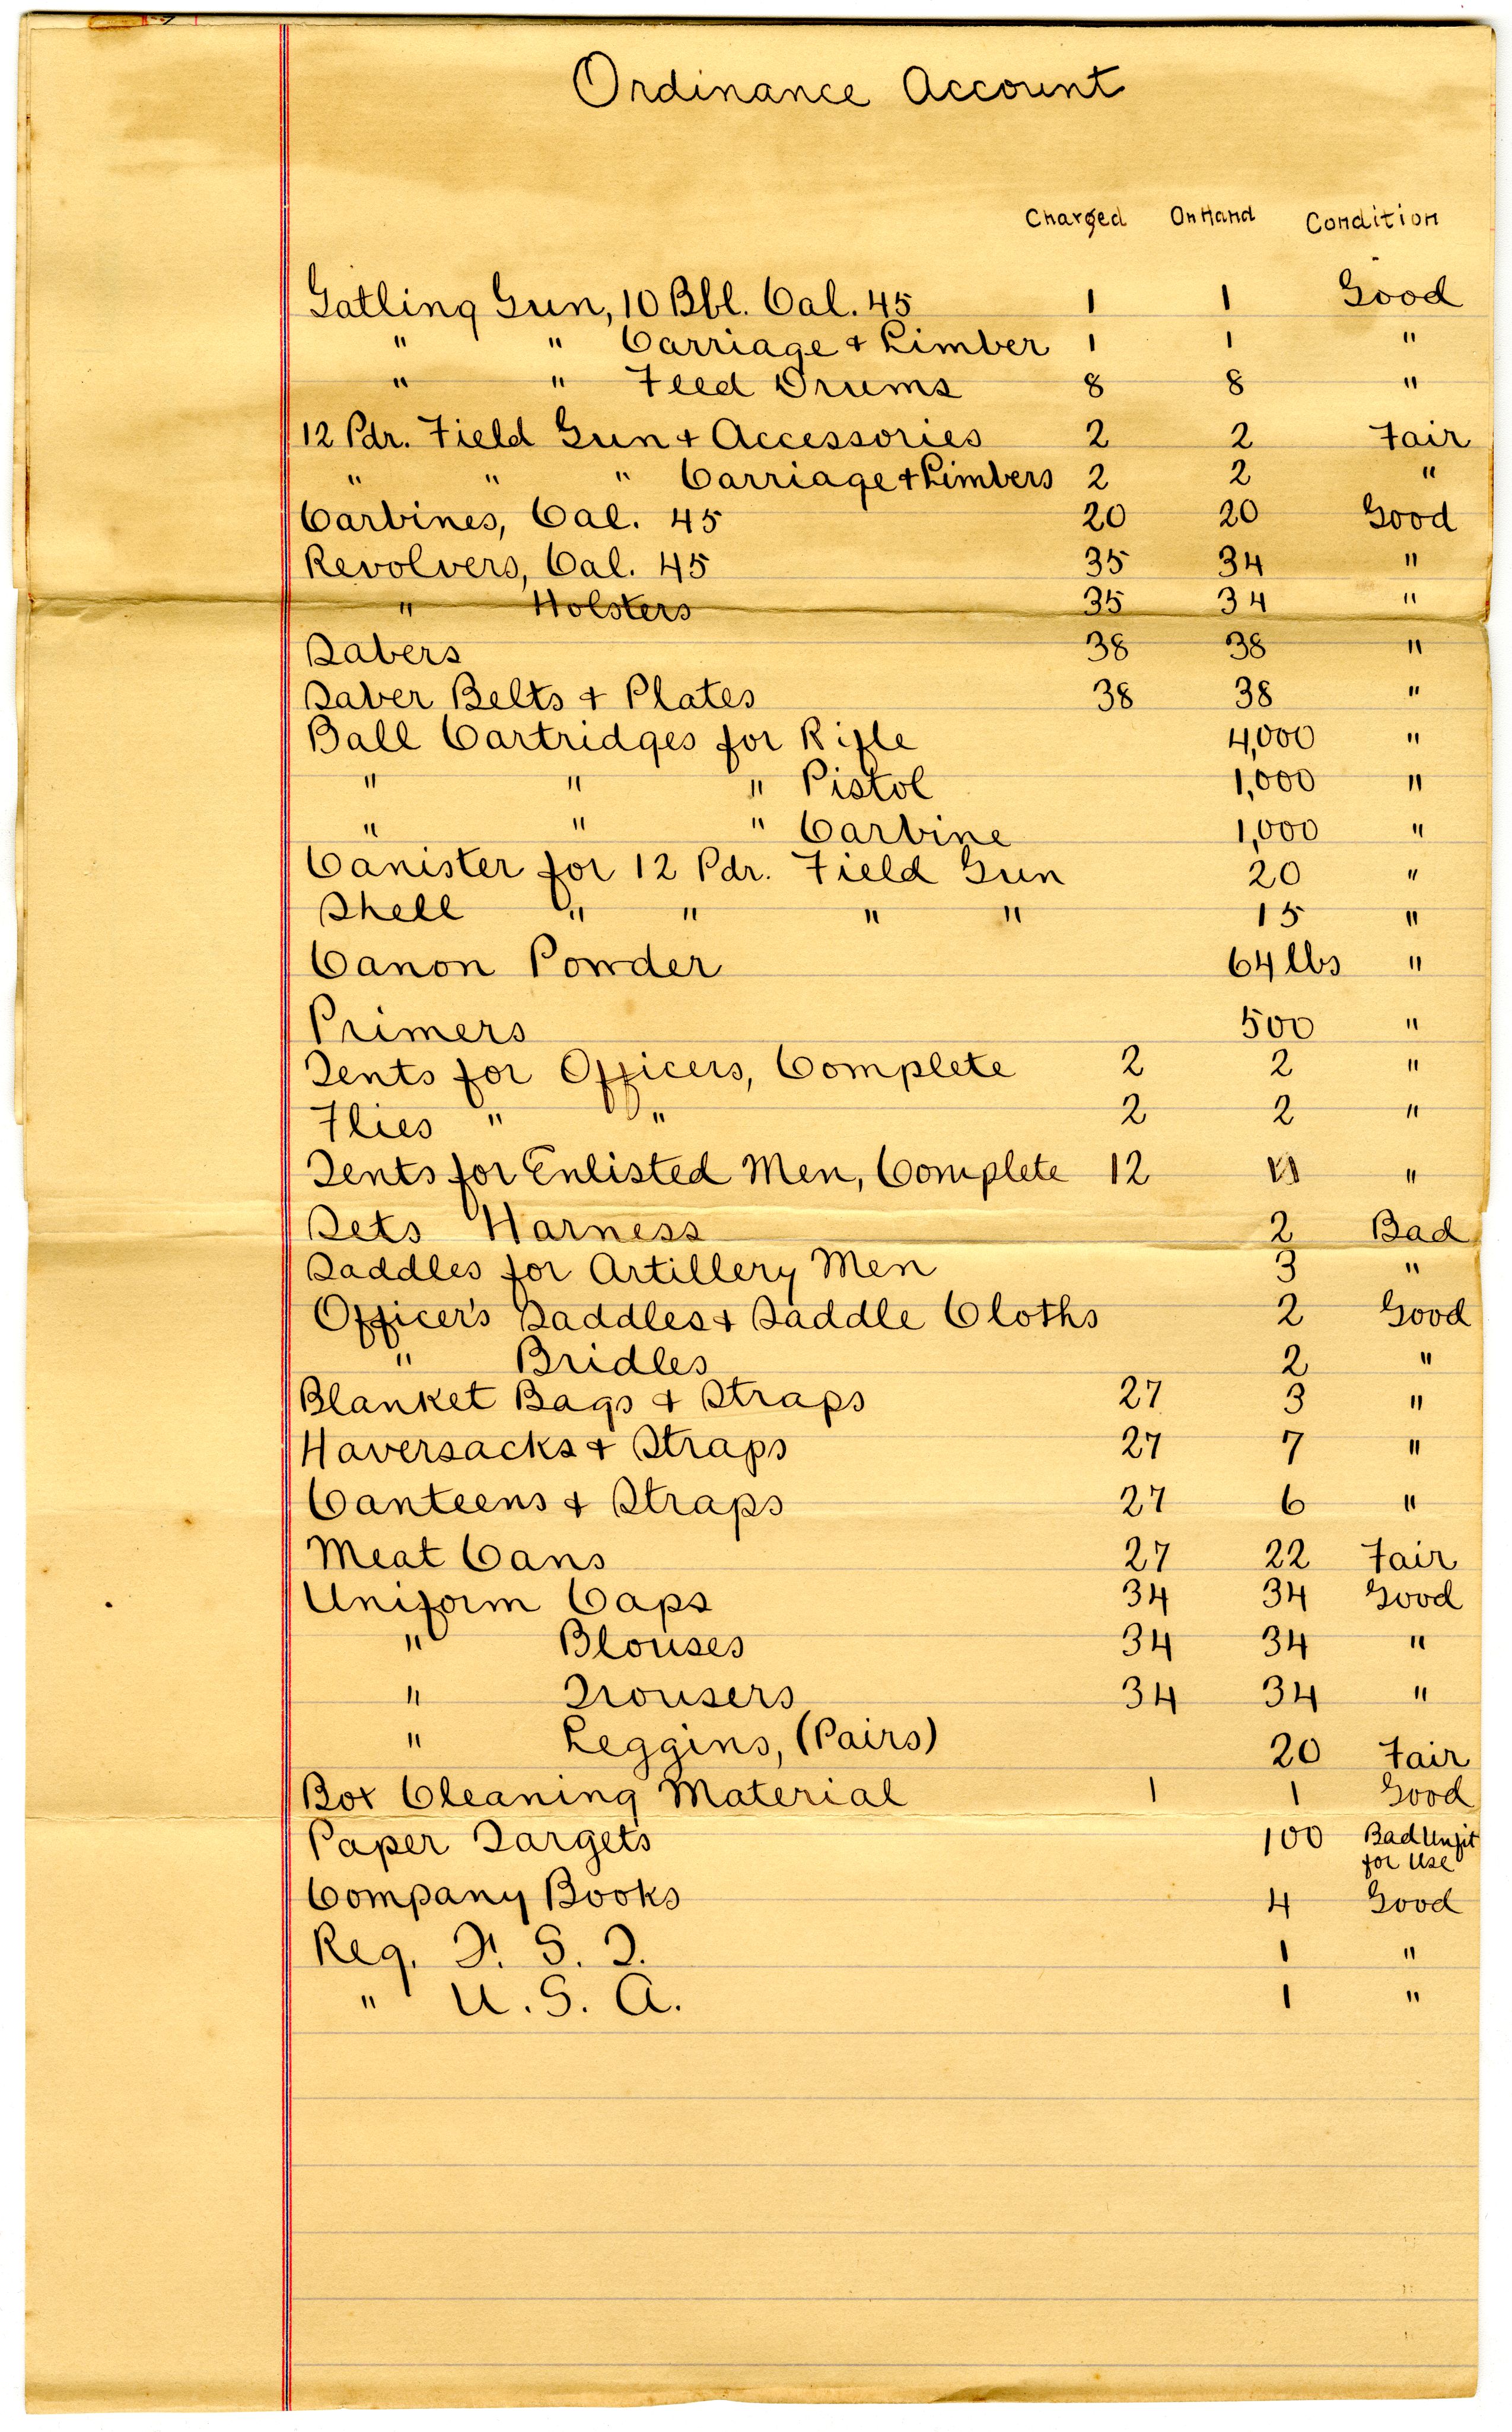 Ordinance Account
Charged On Hand Condition
Gatling Gun, 10 Bbl. Cal. 45 1 1 Good
" " Carriage + Limber 1 1 "
" " Feed Drums 8 8 "
12 Pdr. Field Gun + Accessories 2 2 Fair
" " " Carriage + Limbers 2 2 "
Carbines, Cal. 45 20 20 Good
Revolvers, Cal. 45 35 34 "
" Holsters 35 34 "
Sabers 38 38 "
Saber Belts + Plates 38 38 "
Ball Cartridges for Rifle 4,000 "
" " " Pistol 1,000 "
" " " Carbine 1,000 "
Canister for 12 Pdr. Field Gun 20 "
Shell " " " " 15 "
Canon Powder 64 lbs "
Primers 500 "
Tents for Officers, Complete 2 2 "
Flies " " 2 2 "
Tents for Enlisted Men, Complete 12 "
Sets Harness 2 Bad
Saddles for Artillery Men 3 "
Officer's Saddles + Saddle Cloths 2 Good
" Bridles 2 "
Blanket Bags + Straps 27 3 "
Haversacks + Straps 27 7 "
Canteens + Straps 27 6 "
Meat Cans 27 22 Fair
Uniform Caps 34 34 Good
" Blouses 34 34 "
" Trousers 34 34 "
" Leggins, (Pairs) 20 Fair
Box Cleaning Material 1 1 Good
Paper Targets 100 Bad Unfit
for Use
Company Books 4 Good
Reg. F. S. T. 1 "
" U. S. A. 1 "